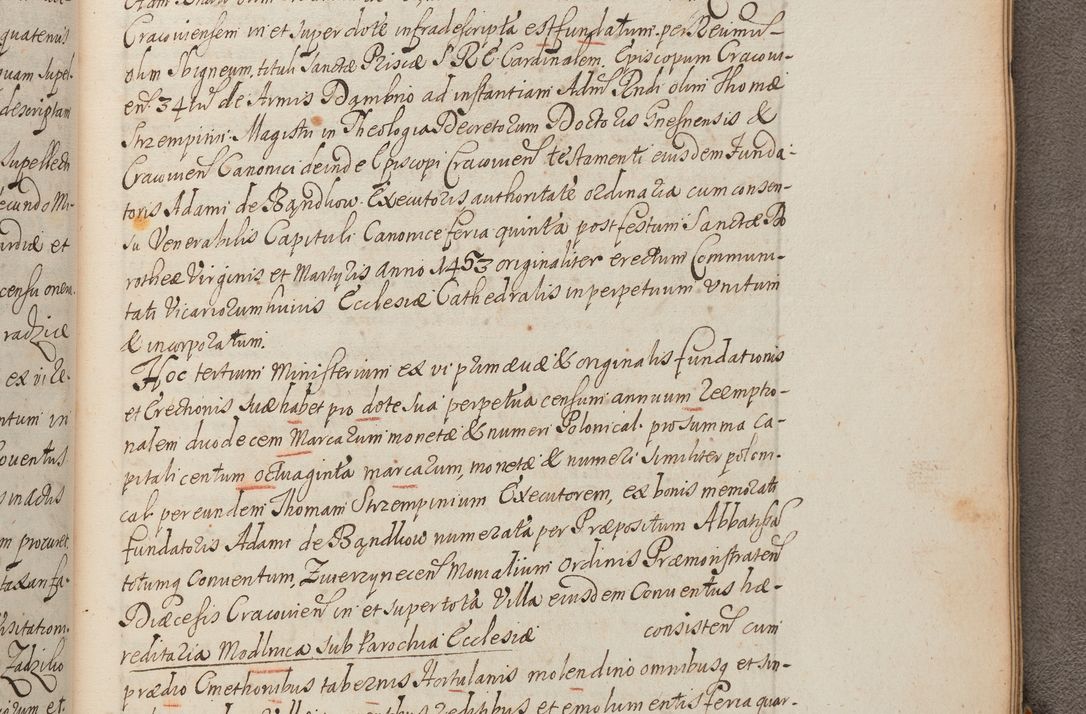 quatenus
Supel-
descriptam
Supellecti
ecundo Mi-
ardiæ et
censu onera
radziæ
ex vi re-
ntum in
oventus
s in actus
m procuret
isitation.
Zadzilo
Cracoviensem in et super dote infradescripta est fundatum per Reverendissimum
olim Sbigneum, tituli Sanctæ Priscæ S. R. E. Cardinalem, Episcopum Cracovi-
en. 34tum de Armis Dambno ad instantiam Adm. Rndi olim Thomæ
Strzempinii Magistri in Theologia Decretorum Doctoris Gnesnensis &
Cracovien Canonici deinde Episcopi Cracovien testamenti eiusdem Funda-
toris Adami de Bandkow Executoris authoritate ordinaria cum consen-
su Venerabilis Capituli Canonice feria quinta post festum Sanctæ Do
rotheæ Virginis et Martyris anno 1453 originaliter erectum Communi-
tati Vicariorum huius Ecclesiæ Cathedralis in perpetuum unitum
& incorporatum.
Hoc tertium Ministerium ex vi primævæ & originalis fundationis
et Erectionis suæ habet pro dote sua perpetua censum annuum reemptio-
nalem duodecem Marcarum monetæ & numeri Polonical. pro summa ca-
pitali centum octuaginta marcarum, monetæ & numeri similiter poloni-
cal. per eundem Thomam Strzempinium Executorem, ex bonis memorati
fundatoris Adami de Bandkow numerata per Præpositum Abbatissa
totumq Conventum, Zwerzynecen Monialium ordinis Præmonstraten
Diæcesis Cracovien in et super tota Villa eiusdem Conventus hæ-
reditaria Modlnica sub Parochia Ecclesiæ consisten cum
prædio Cmethonibus tabernis Hortulanis molendino omnibusq et sin-
reditibus et emolumentis Feria quar-